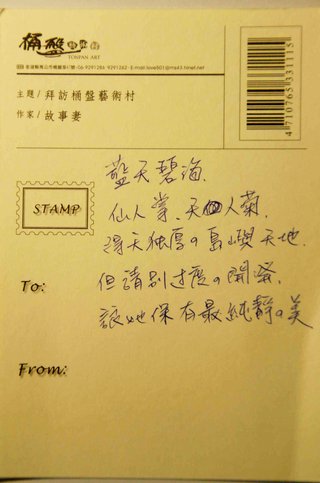 桶盤藝術村
TONPAN ART
06-9291286 9291262 E-mail:love501@ms43.hinet.net
主題/拜訪桶盤藝術村
作家/故事妻
4710765331115
STAMP
藍天碧海.
仙人掌、天人菊.
得天独厚の島嶼天地.
但請别过度の開發.
讓她保有最純靜の美
To:
From: